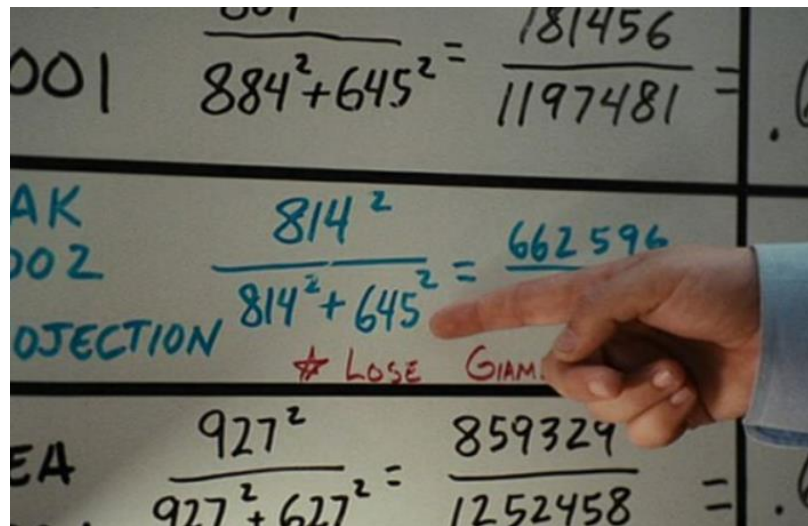 001
884²+645² = 181456
1197481 = .
AK
002
814²
814²+645² = 662596
OJECTION
☆ LOSE GIAM
EA
927²
927²+627² = 859329
1252458 = .